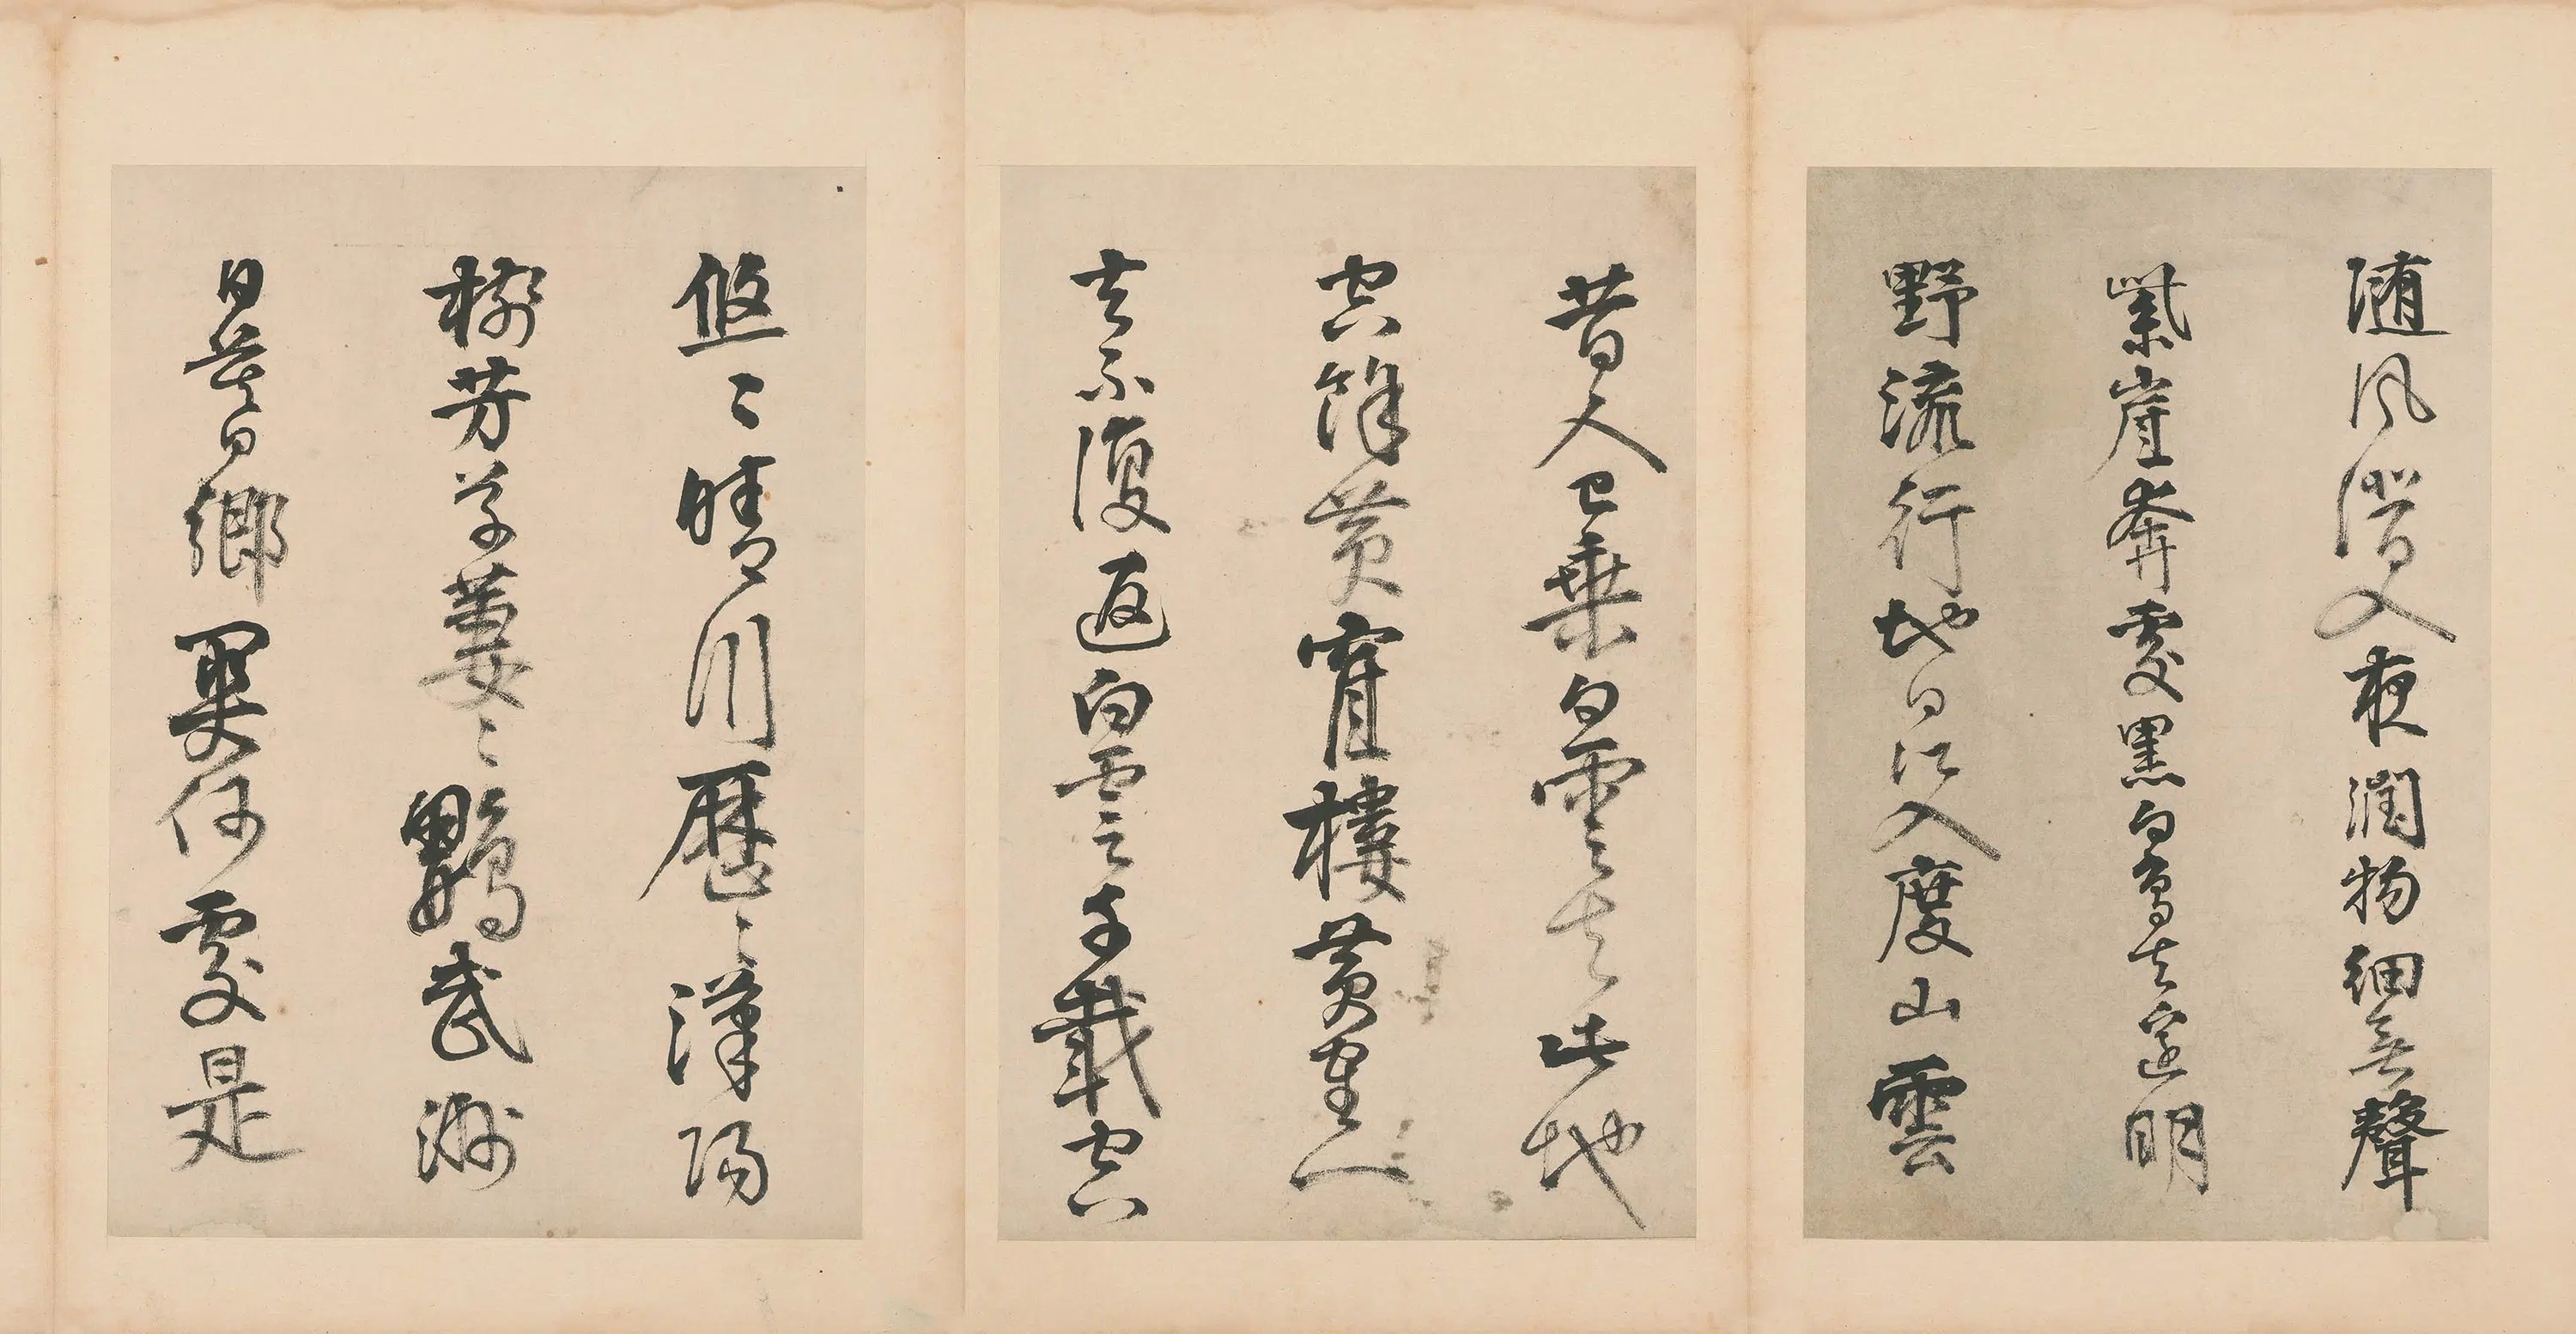 随風潛入夜潤物細無聲
紫崖奔處黑白鳥去邊明
野流行地日江入度山雲
昔人已乘白雲去此地
空餘黃寉樓黃寉一
去不復返白雲千載空
悠〻晴川歷〻漢陽
樹芳草萋〻鸚武洲
日暮鄉關何處是